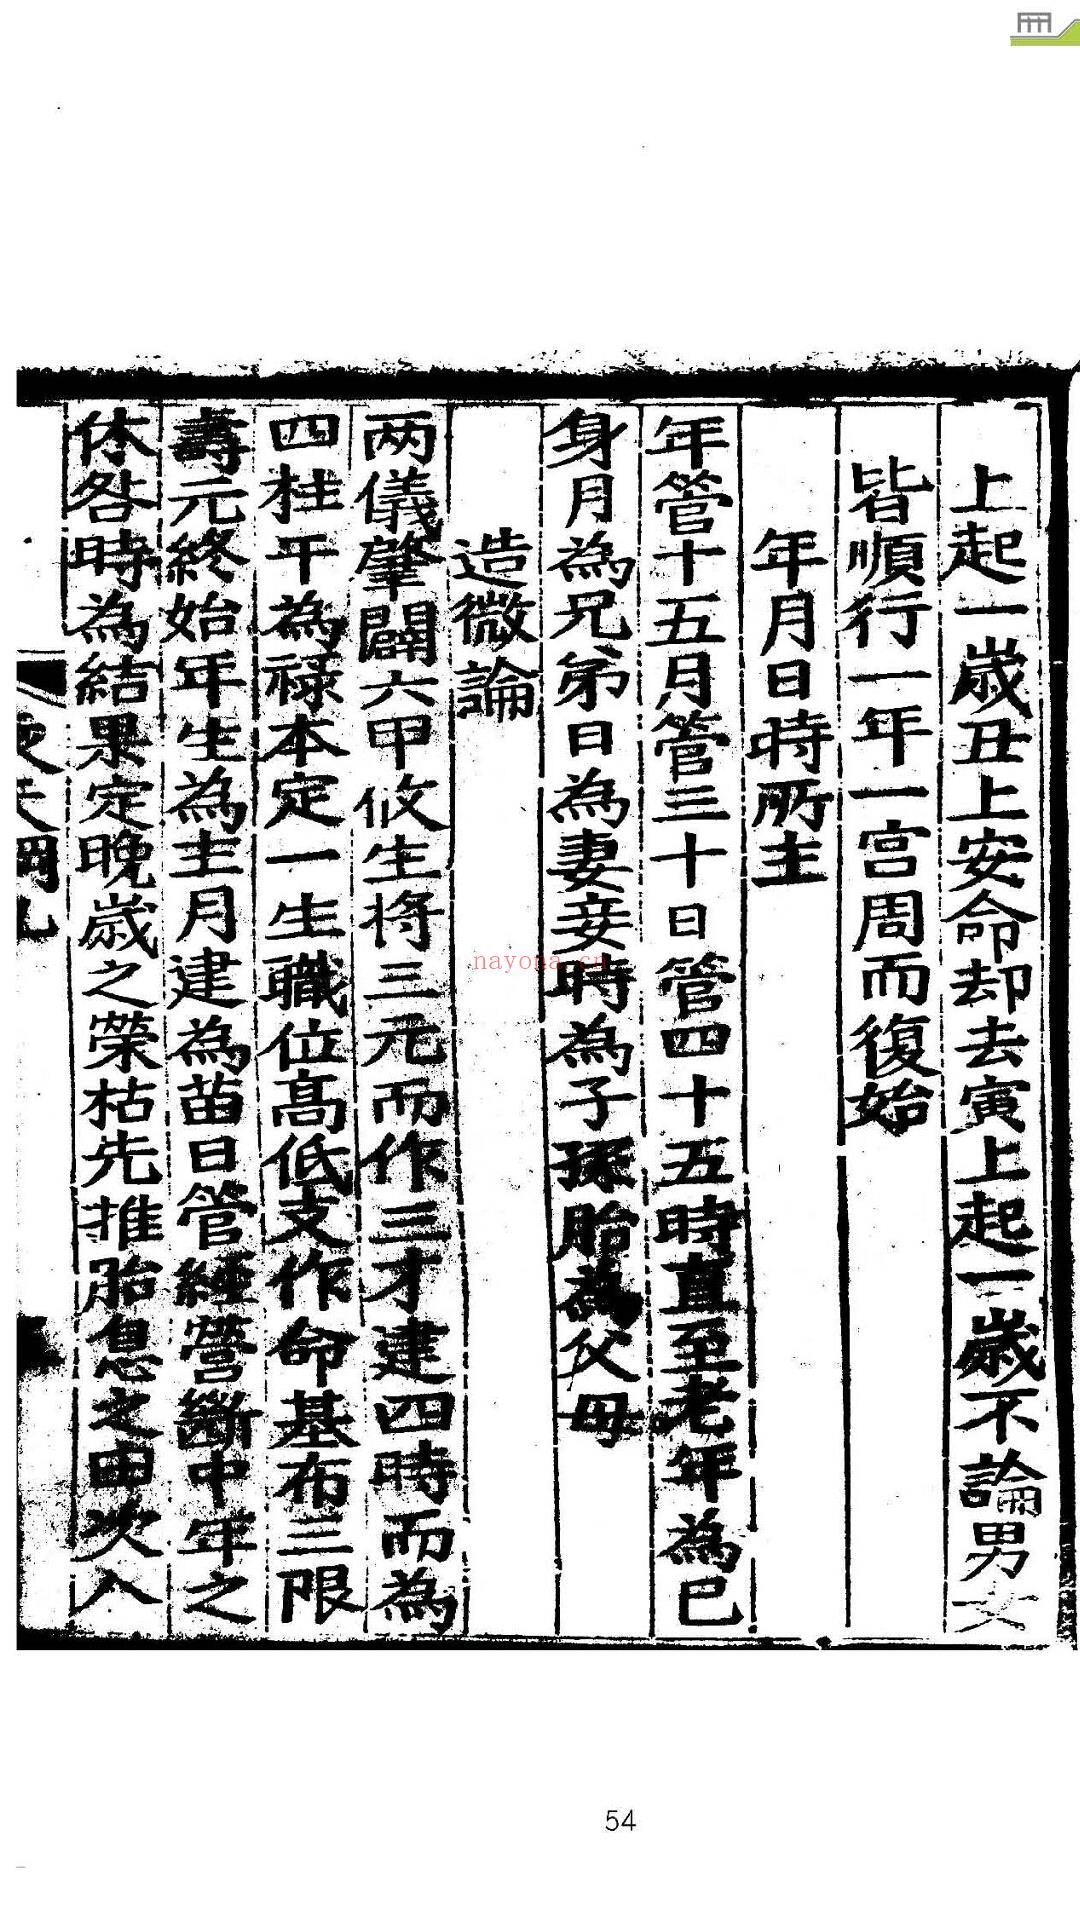 上起一歲丑上安命却去寅上起一歲不論男女
皆順行一年一宮周而復始
年月日時所主
年管十五月管三十日管四十五時直至老年為已
身月為兄弟日為妻妾時為子孫胎為父母
造微論
两儀肇闢六甲攸生將三元而作三才建四時而為
四柱干為禄本定一生職位髙低支作命基布三限
壽元終始年生為主月建為苗日管經營斷中年之
休咎時為結果定晚歲之榮枯先推胎息之由次入
nayona.cn
54